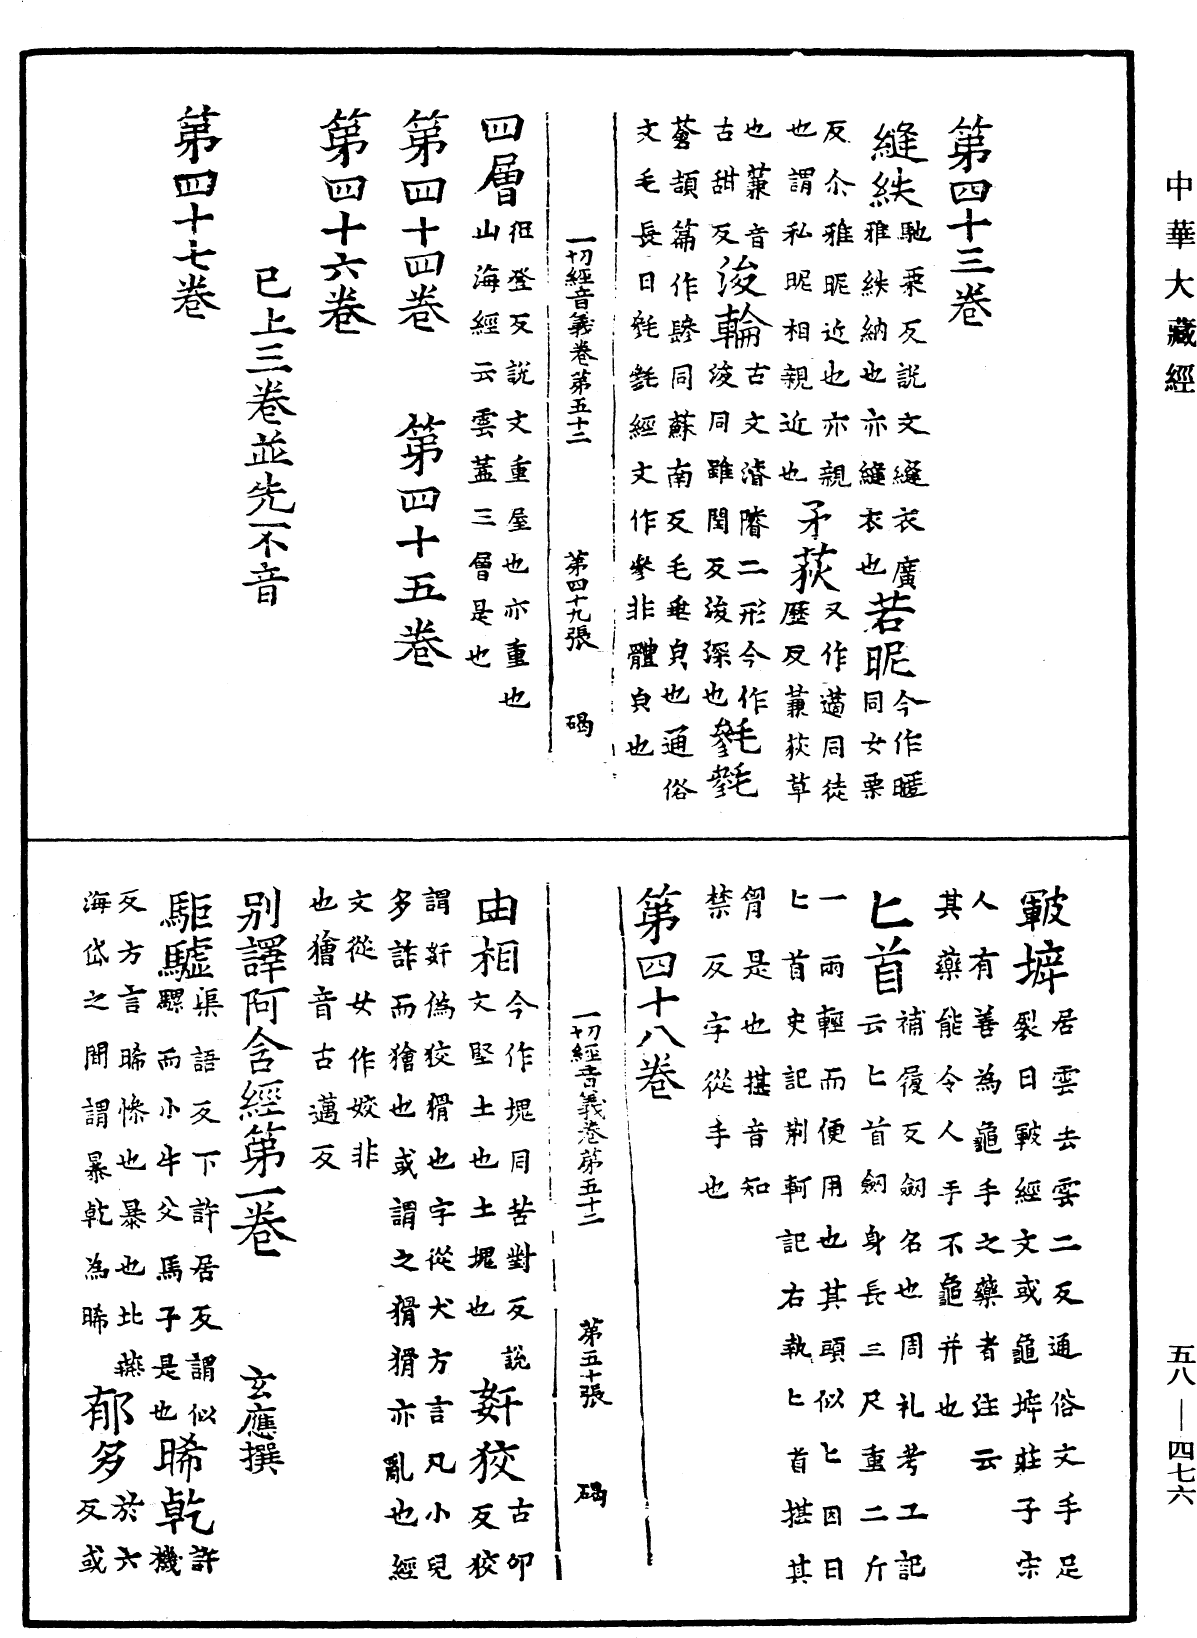 中華大藏經
第四十三卷
縫紩馳栗反說文縫衣廣雅紩納也亦縫衣也若昵今作暱同女栗
反尒雅昵近也亦親也謂私昵相親近也矛荻又作藡同徒歷反蒹荻草
也蒹音古甜反浚輪古文濬䜭二形今作浚同雖閏反浚深也毿毿
蒼頡篇作䫩同蘇南反毛垂皃也通俗文毛長曰毿毿經文作參非體皃也
一切經音義卷第五十二　第四十九張　碣
四層徂登反說文重屋也亦重也山海經云雲蓋三層是也
第四十四卷　第四十五卷
第四十六卷
已上三卷並先不音
第四十七卷
皸坼居雲去雲二反通俗文手足裂曰皸經文或龜坼莊子宋
人有善為龜手之藥者注云其藥能令人手不龜并也
匕首補履反劒名也周礼考工記云匕首劒身長三尺重二斤
一兩輕而便用也其頭似匕因曰匕首史記荊軻記右執匕首揕其
胷是也揕音知禁反字從手也
第四十八卷
一切經音義卷第五十二　第五十張　碣
由相今作塊同苦對反說文堅土也土塊也姧狡古卯反狡
謂姧偽狡猾也字從犬方言凡小兒多詐而獪也或謂之猾猾亦亂也經
文從女作姣非也獪音古邁反
別譯阿含經第一卷　玄應撰
駏驉渠語反下許居反謂似騾而小牛父馬子是也晞乾許機
反方言晞燥也暴也北燕海岱之間謂暴乾為晞郁多於六反或
五八—四七六